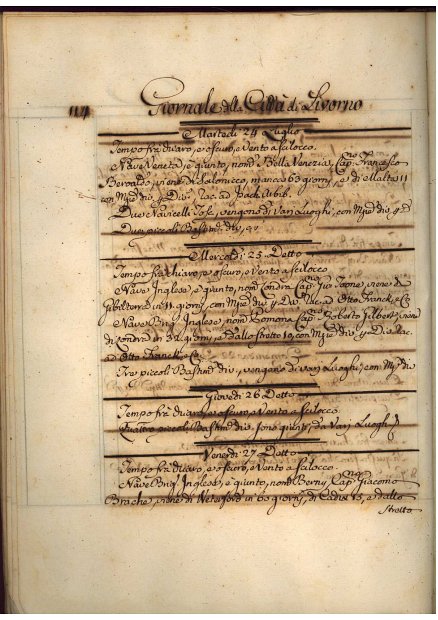 114 Giornale della Città di Livorno
Martedì 24 Luglio
Tempo frà chiaro, e oscuro, e Vento a scilocco.
Nave Veneta, è giunto, nom.ª Bella Venezia, Cap.no Francesco
Beroaldo, viene di Salonicco, manca 63 giorni, e di Malta 11
con Mzie div. y Div. Rac. ad
Due Navicelli Tos. vengono di varj Luoghi, con Mzie y d.
Due piccoli Bastim. div.
Mercoldì 25 Detto
Tempo frà chiaro, e oscuro, e Vento a scilocco
Nave Inglese, è giunto, nom. Londra Cap.no Gio: viene di
Gibilterra in 11 giorni, con Mzie Div. y Div. Rac. ad Otto Franck, e Co.
Nave Brig. Inglese nom. Pomona Cap.no Roberto Gilbert, viene
di Londra in 32 giorni, e dallo stretto 10, con Mzie div. y Div. Rac.
ad Otto Franck e Co.
Tre piccoli Bastim. div., vengono di varj Luoghi, con Mzie div
Giovedì 26 Detto
Tempo frà chiaro, e oscuro, e Vento a scilocco.
Quattro piccoli Bastim. Div. sono giunti, da varj Luoghi
Venerdì 27 Detto
Tempo frà chiaro, e oscuro, e Vento a scilocco
Nave Brig. Inglese, è giunto, nom. Berny, Cap.no Giacomo
Brache, viene di Waterford in 60 giorni, di Cadix 15, e dallo
stretto